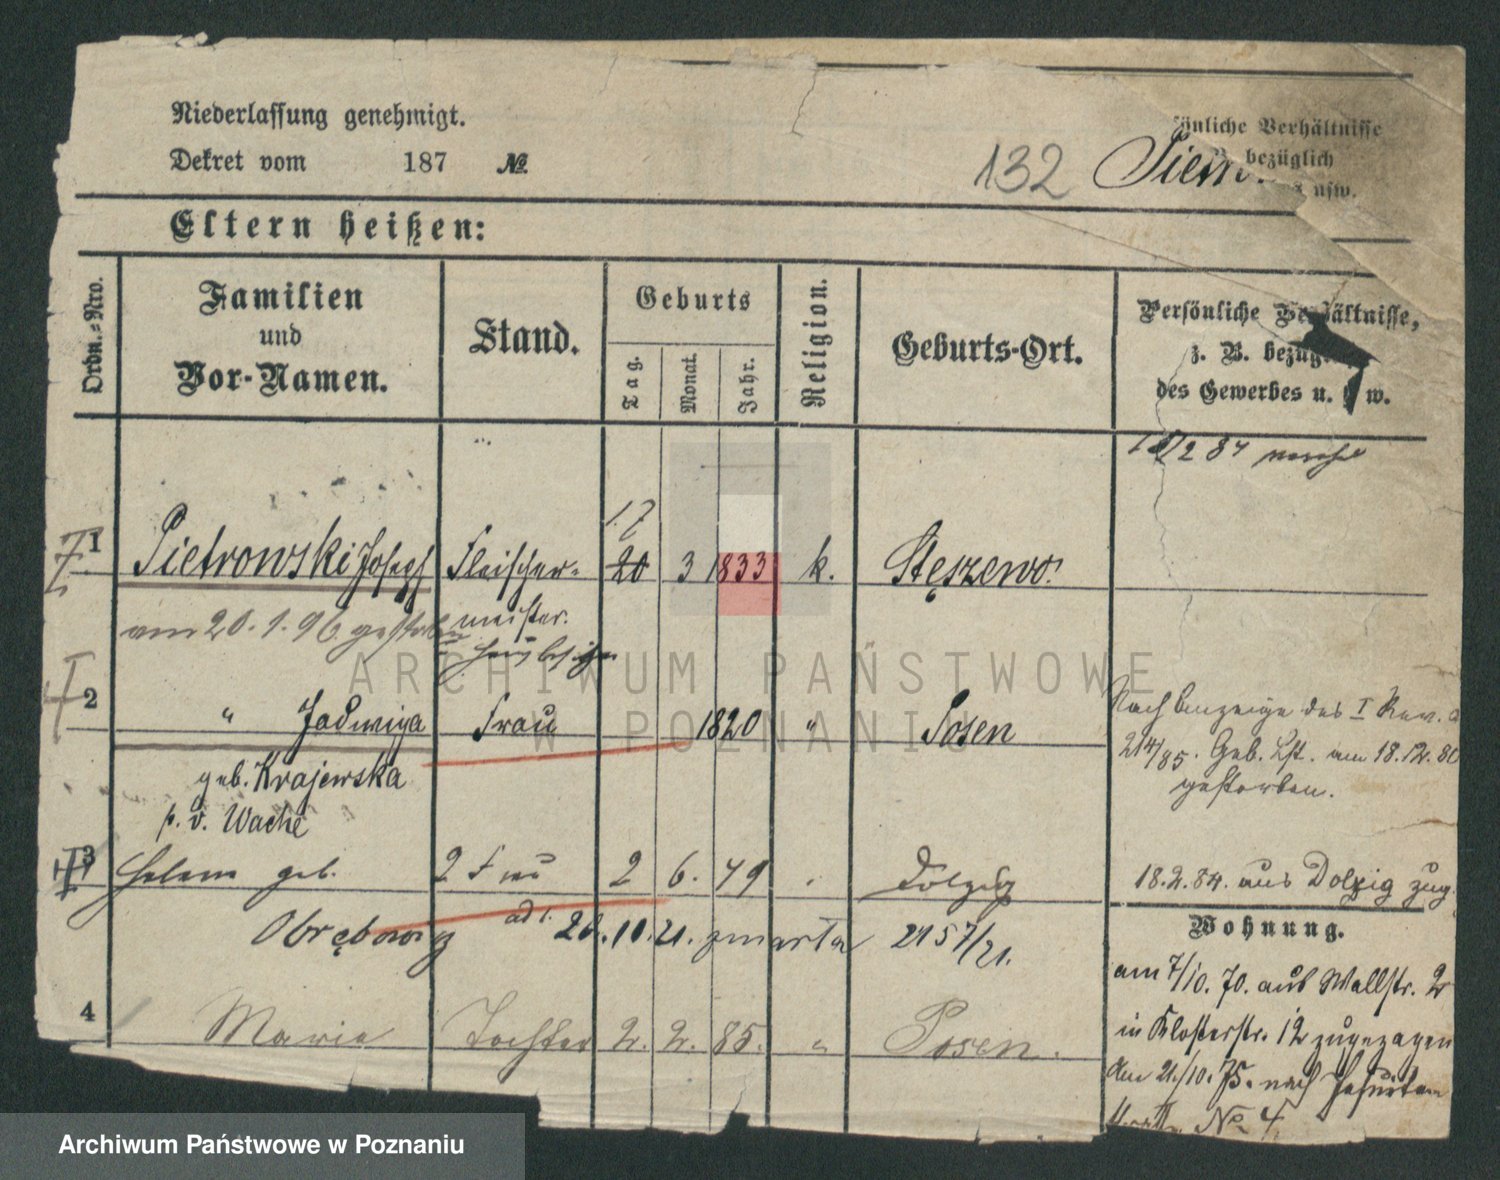 Niederlassung genehmigt.
Dekret vom 187 №
132
önliche Verhältnisse
bezüglich
usw.
Eltern heißen:
Ordn.-Nro.
Familien
und
Vor-Namen.
Stand.
Geburts
Tag.
Monat.
Jahr.
Religion.
Geburts-Ort.
Persönliche Verhältnisse,
z. B. bezüg
des Gewerbes u. w.
2 84
17
1 Pietrowski Joseph Fleischer- 20 3 1833 k. Stęszewo.
am 20.1.96 gestorben meister.
Hausbesitzer
2 " Jadwiga Frau 1820 " Posen
geb. Krajewska
p. v. Wache
Nach Anzeige des I Rev.
214/85. Geb. Lst. am 18.12.80
gestorben.
3 Helena geb. 2 Frau 2 6. 49 Dolzig 18.2.84. aus Dolzig zug.
ad 1. 26.10.21. 2157/21.
4 Marie Tochter 2. 2. 85. " Posen.
Wohnung.
am 7/10. 70. aus Wallstr. 2
in Klosterstr. 12 zugezogen
den 21./10. 75. nach Jesuiten
No 4
ARCHIWUM PAŃSTWOWE
W POZNANIU
Archiwum Państwowe w Poznaniu